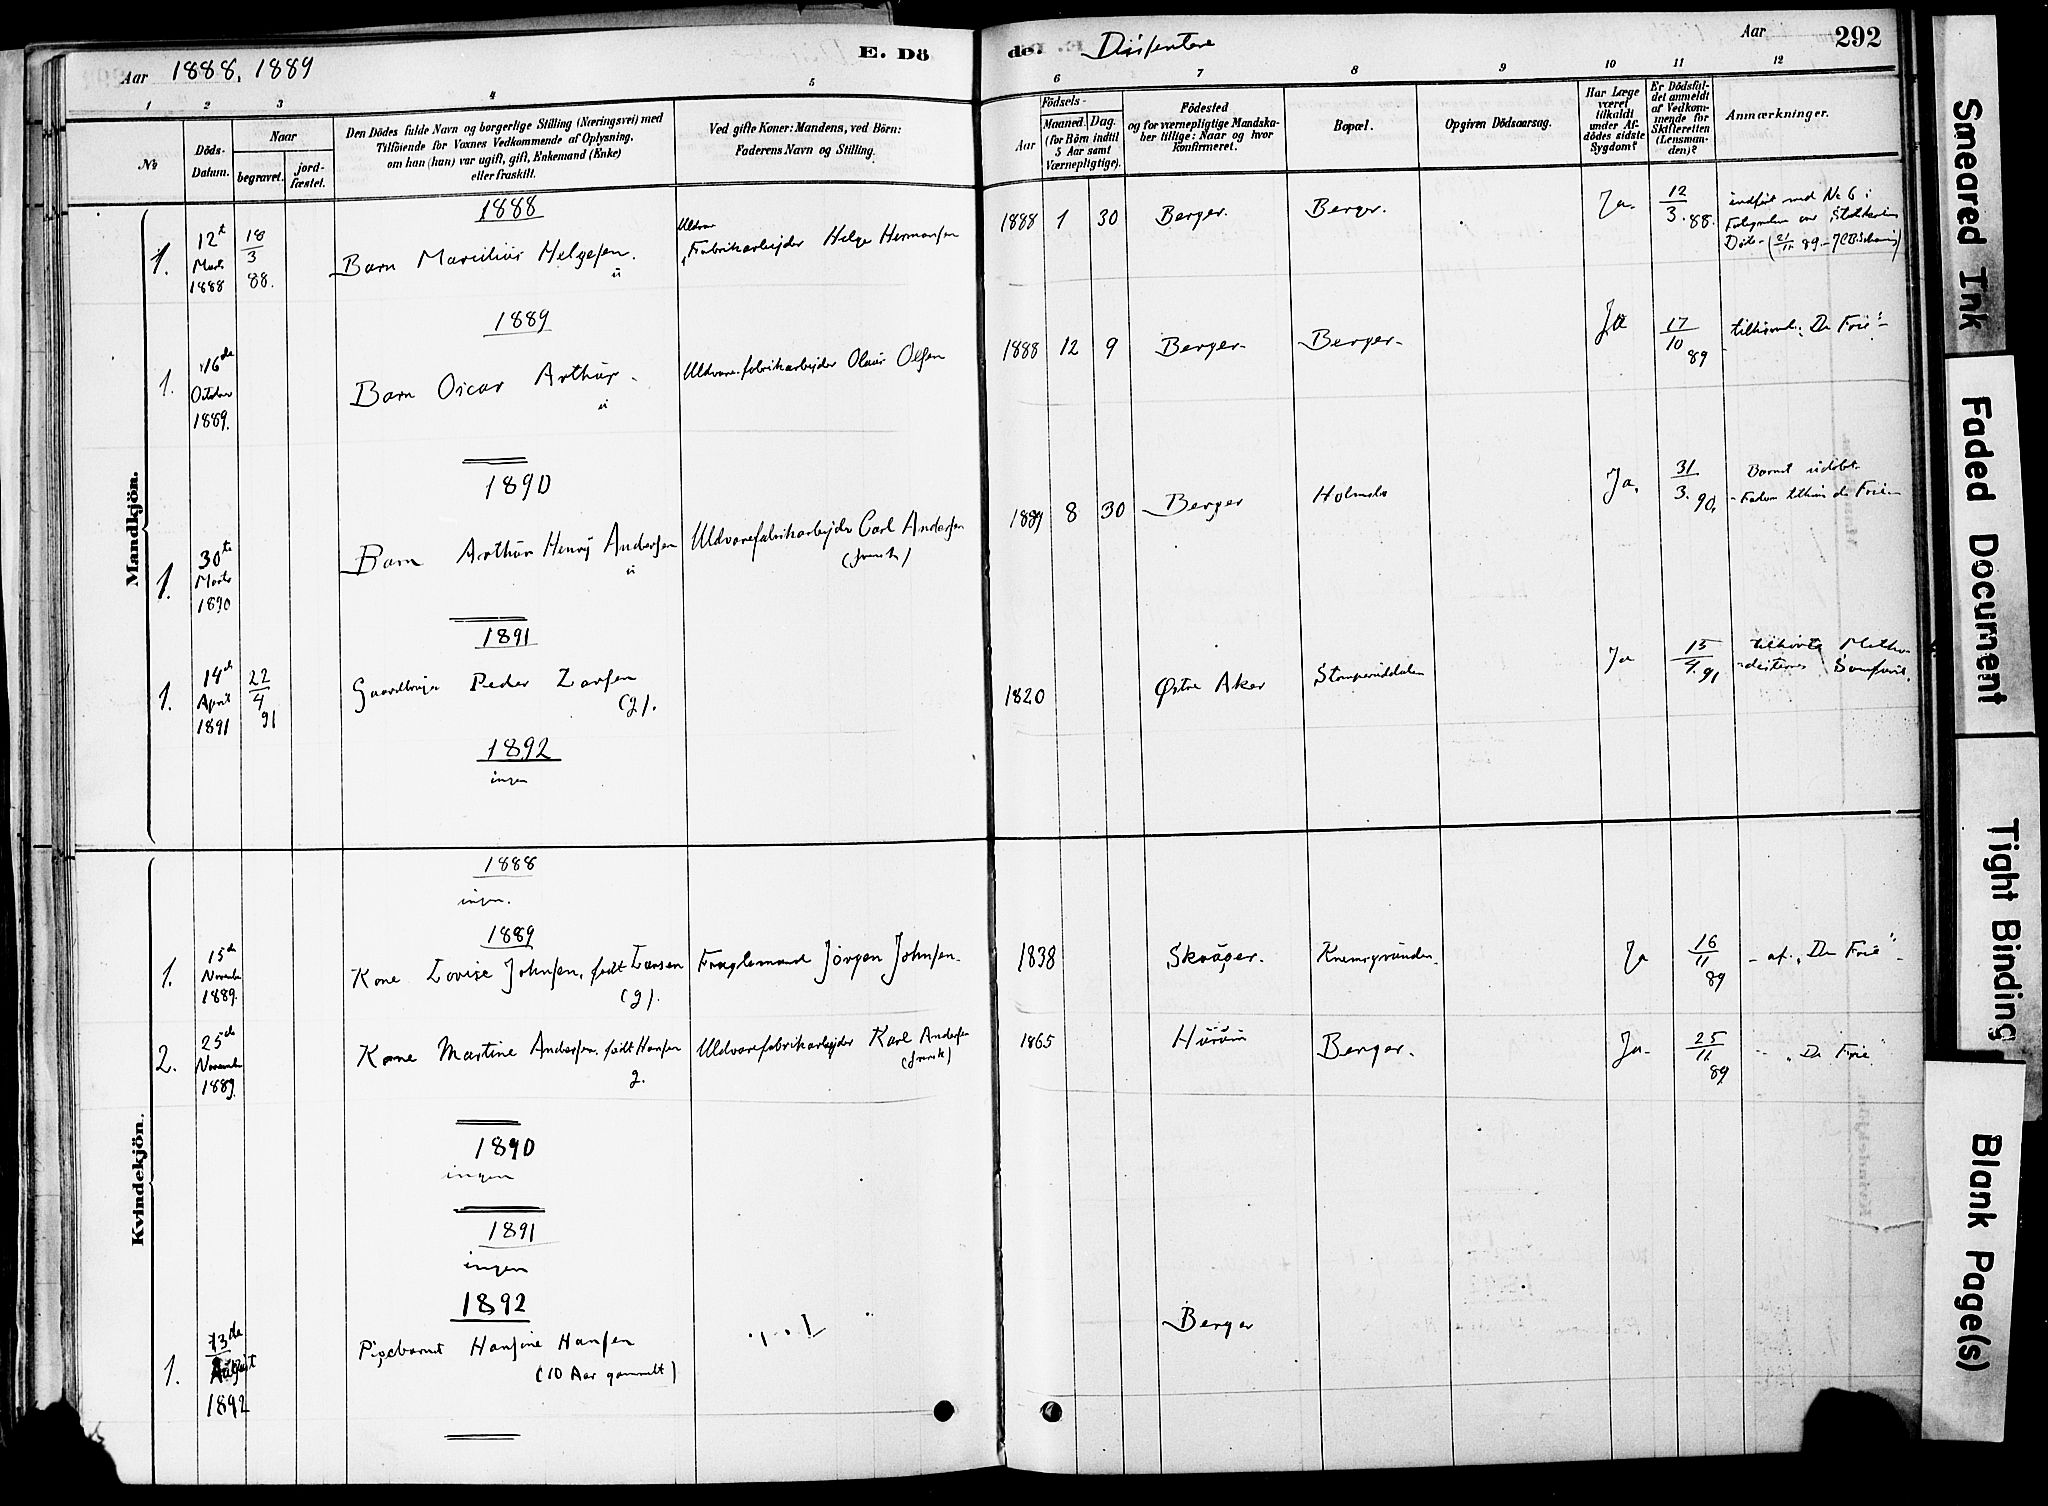 Aar 1888, 1889
E. Dö
de.
Disentere
Aar
292
1
2
3
4
5
6
7
8
9
10
11
12
No
Döds-
Datum.
Naar
begravet.
jord-
fæstet.
Den Dödes fulde Navn og borgerlige Stilling (Næringsvei) med
Tilföiende for Voxnes Vedkommende af Oplysning,
om han (hun) var ugift, gift, Enkemand (Enke)
eller fraskilt.
Ved gifte Koner: Mandens, ved Börn:
Faderens Navn og Stilling.
Födsels-
Aar
Maaned.
Dag.
(for Börn indtil
5 Aar samt
Værnepligtige).
Födested
og for værnepligtige Mandska-
ber tillige: Naar og hvor
konfirmeret.
Bopæl.
Opgiven Dödsaarsag.
Har Læge
været
tilkaldt
under Af-
dödes sidste
Sygdom?
Er Dödsfal-
det anmeldt
af Vedkom-
mende for
Skifteretten
(Lensman-
den)?
Anmærkninger.
Mandkjön.
1888
1.
12te
Marts
1888
18
3
88.
Barn Marcilius Helgesen.
Uldvare
Fabrikarbejder Helge Hermansen
1888 1 30 Berger. Berger. Ja. 12
3. 88.
indført med No 6 i
Døde- (21/11 89-
1889
1.
16de
October
1889.
Barn Oscar Arthur.
Uldvarefabrikarbejder Olaus Olsen
1888 12 9 Berger- Berger- Ja 17
10 89
tilhører "De Frie"-
1890
1.
30te
Marts
1890
Barn Arthur Henry Andersen
Uldvarefabrikarbejder Carl Andersen
(svensk)
1889 8 30 Berger Holmsbo Ja. 31
3. 90.
Barnet udøbt
- Faderen tilhører de Frie-
1891
1.
14de
April
1891
22
4
91
Gaardbruger Peder Larsen
(g).
1820 Østre Aker Ja 15
4. 91
tilhørte Metho-
disternes Samfund.
1892
ingen
Kvindekjön.
1888
ingen.
1889
1.
15de
November
1889.
Kone Lovise Johnsen, født Larsen
(g).
Jørgen Johnsen.
1838 Skoger. Ja 16
11 89
- af "De Frie"-
2.
25de
November
1889.
Kone Martine Andersen, født Hansen
g.
Uldvarefabrikarbejder Karl Andersen
(svensk)
1865 Hurum Berger. Ja. 25
11. 89
- "De Frie"
1890
ingen
1891
ingen
1892
1.
13de
August
1892
Pigebarnet Hansine Hansen
(10 Aar gammelt)
Berger
Smeared Ink
Faded Document
Tight Binding
Blank Page(s)